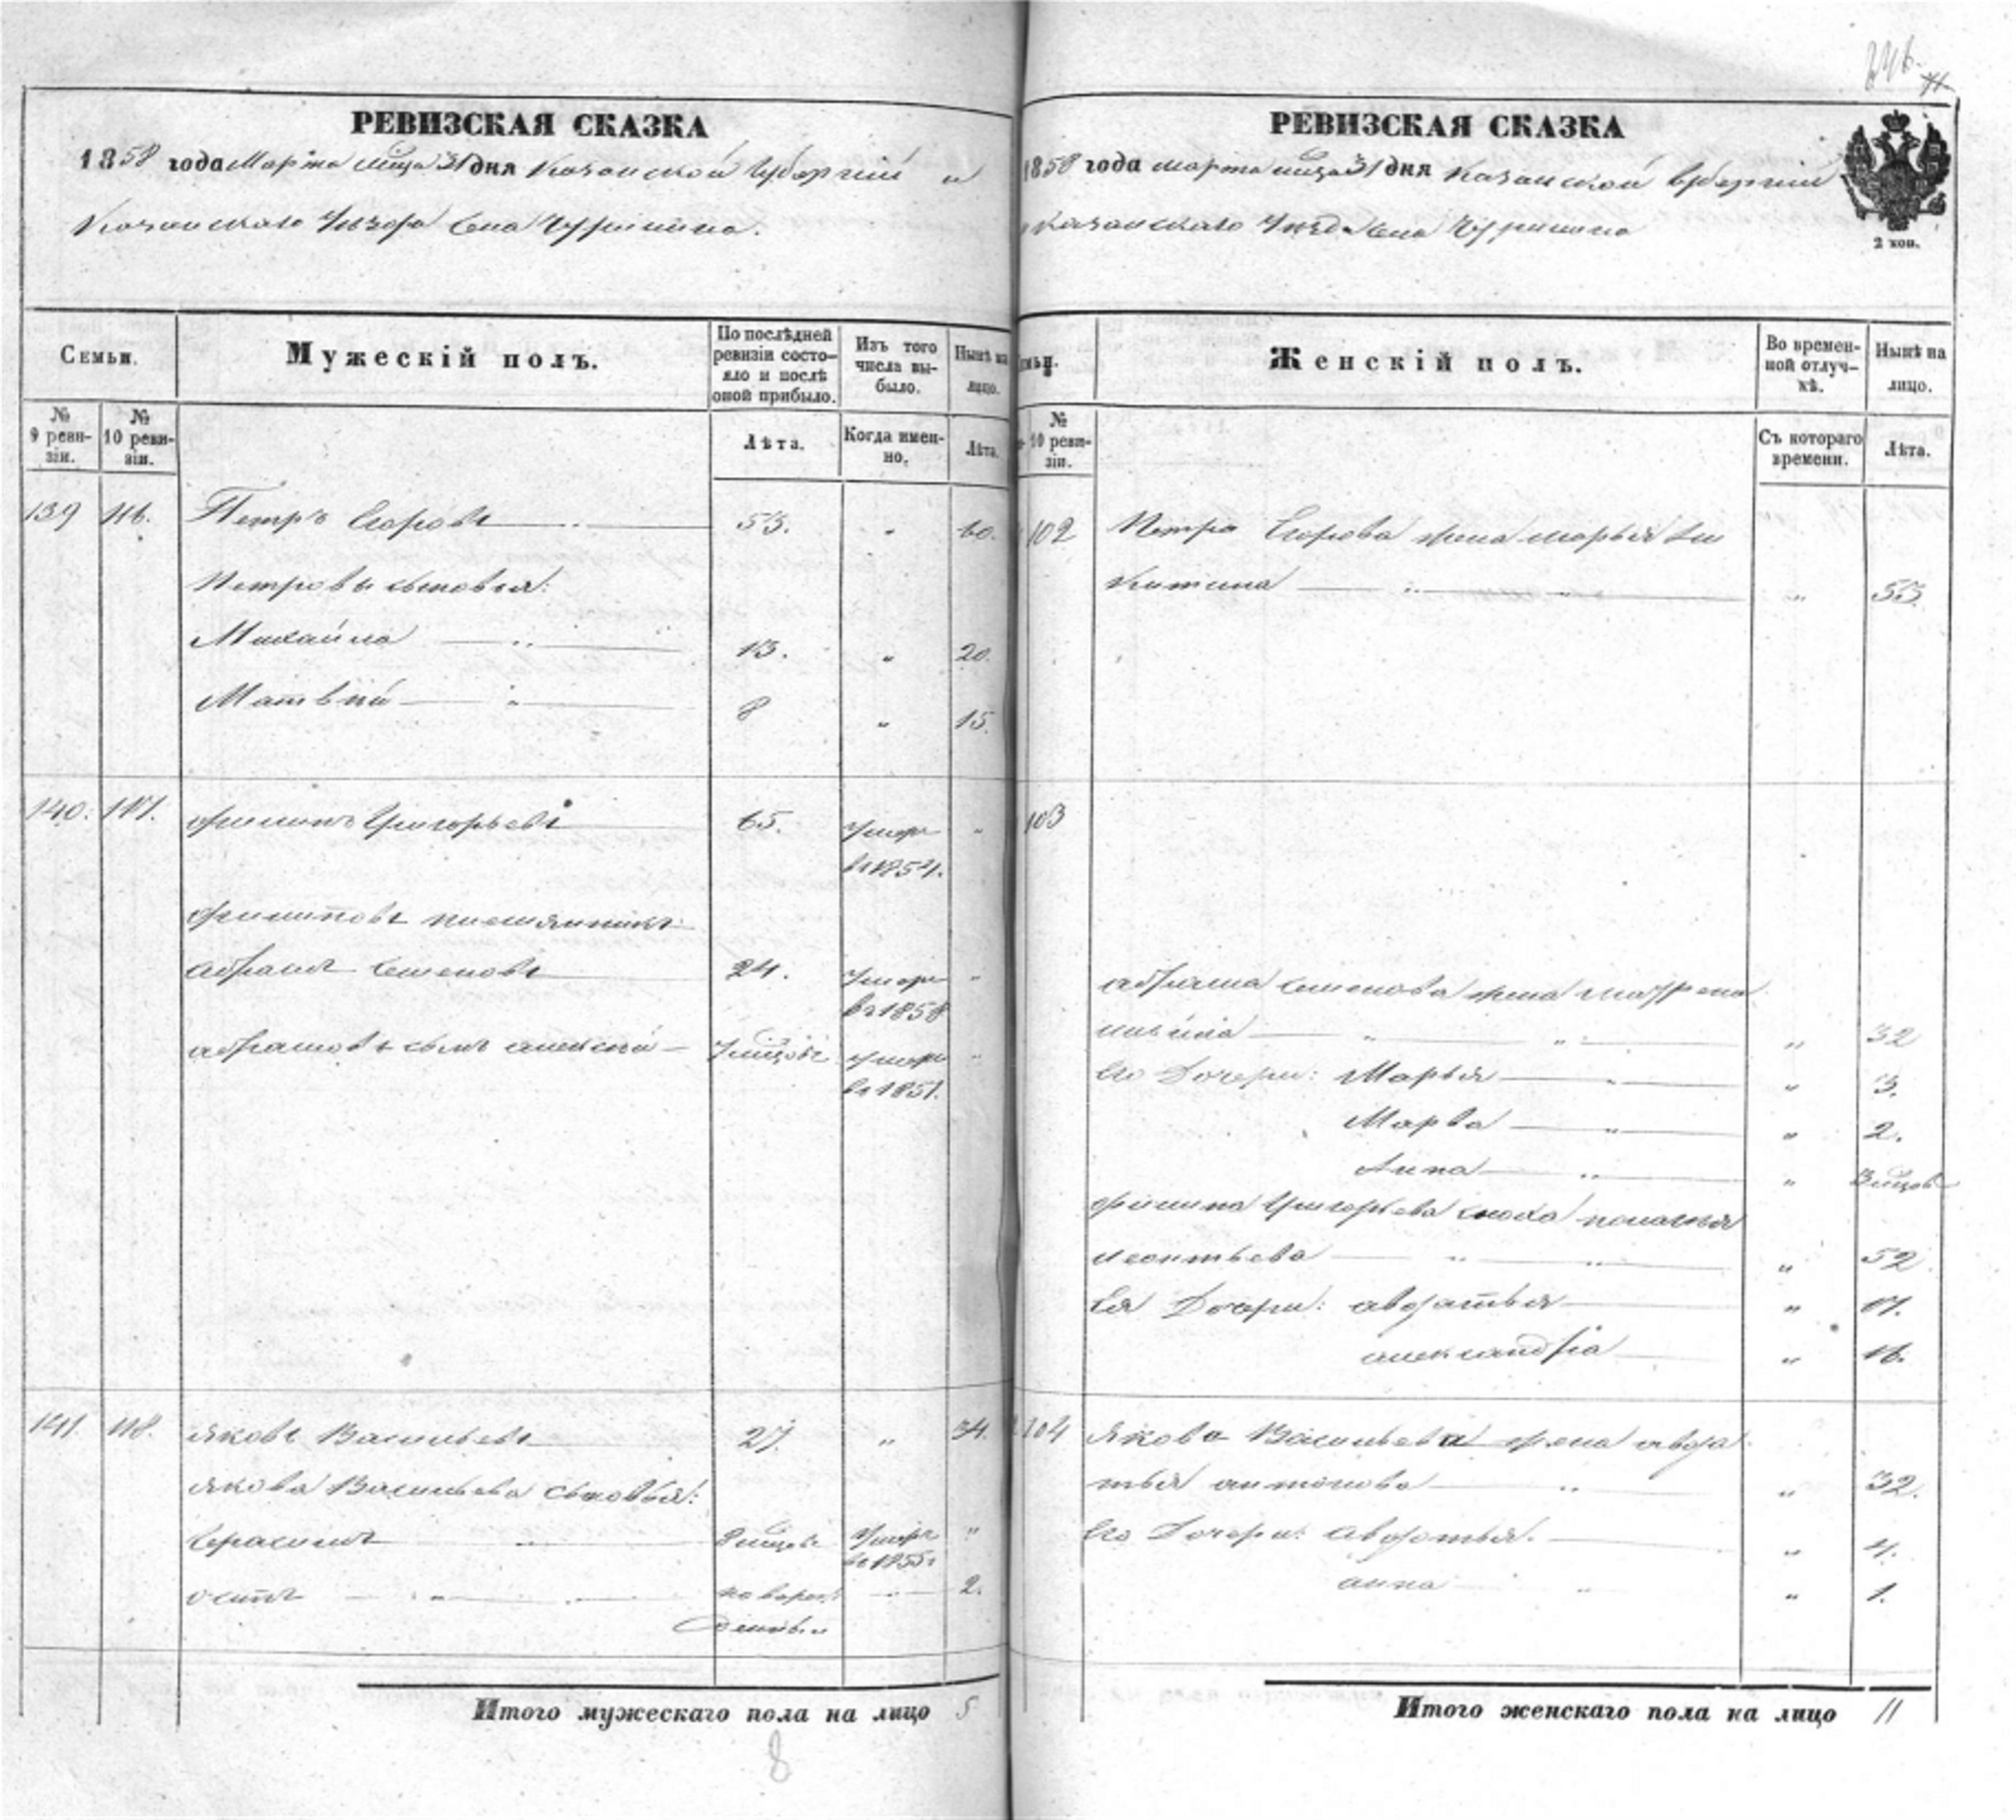 РЕВИЗСКАЯ СКАЗКА
1858 года Марта мца 31 дня Казанской Губернiи и
Казанскаго Уезда Села
Семьи.
№ 9 ревизiи.
№ 10 ревизiи.
Мужескiй полъ.
По послѣдней
ревизiи состо-
яло и послѣ
оной прибыло.
Лѣта.
Изъ того
числа вы-
было.
Когда имен-
но.
Нынѣ на
лицо.
Лѣта.
139 116. Петръ Егоровъ 53. " 60.
Петровы сыновья:
Михайла 13. " 20.
Матвѣй 8 " 15.
140. 117. Филипъ Григорьевъ 65. умеръ "
въ 1854.
Филиповъ племянникъ
Абрамъ Семеновъ 24. умеръ "
въ 1858
Абрамовъ сынъ Алексѣй умеръ "
въ 1851.
141 118. Яковъ Васильевъ 27. " 34.
Якова Васильева сыновья:
Герасимъ умеръ "
въ 1855
Осипъ 2.
Итого мужескаго пола на лицо 5
8
РЕВИЗСКАЯ СКАЗКА
1858 года марта мца 31 дня Казанской Губернiи
Казанскаго Уезд. Села
2 коп.
№
10 реви-
зiи.
Женскiй полъ.
Во времен-
ной отлуч-
кѣ.
Съ котораго
времени.
Нынѣ на
лицо.
Лѣта.
102 Петра Егорова жена Марья Ни
китина " 53.
103
Абрама Семенова жена Матрена
" 32
Его Дочери: Марья " 3.
Марва " 2.
Анна "
Филипа Григорьева сноха Пелагѣя
Леонтьева " 52
Ея Дочери: Авдотья " 17.
Александра " 16.
104 Якова Васильева жена Авдо
тья Антонова " 32.
Его Дочери: Авдотья. " 4.
Анна " 1.
Итого женскаго пола на лицо 11